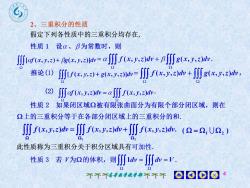 2、三重积分的性质
假定下列各性质中的三重积分均存在,
性质 1 设α、β为常数时,则
∭_Ω[αf(x,y,z)+βg(x,y,z)]dv=α∭_Ω f(x,y,z)dv+β∭_Ω g(x,y,z)dv.
推论⑴ ∭_Ω[f(x,y,z)+g(x,y,z)]dv=∭_Ω f(x,y,z)dv+∭_Ω g(x,y,z)dv,
⑵ ∭_Ω αf(x,y,z)dv=α∭_Ω f(x,y,z)dv.
性质 2 如果闭区域Ω被有限张曲面分为有限个部分闭区域,则在
Ω上的三重积分等于在各部分闭区域上的三重积分的和.
∭_Ω f(x,y,z)dv=∭_Ω₁ f(x,y,z)dv+∭_Ω₂ f(x,y,z)dv, (Ω=Ω₁∪Ω₂)
此性质称为三重积分关于积分区域具有可加性.
性质 3 若 V为Ω的体积,则∭_Ω 1dv=∭_Ω dv=V.
4